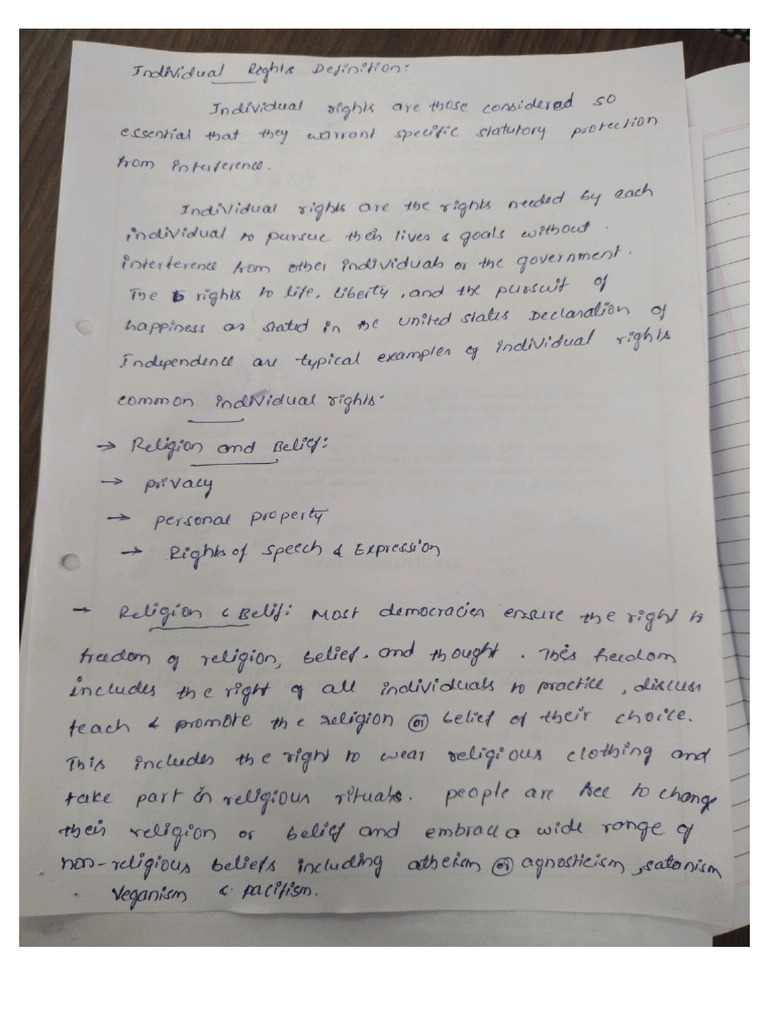 Individual Rights Definition:
Individual rights are those considered so
essential that they warrant specific statutory protection
from interference.
Individual rights are the rights needed by each
individual to pursue their lives & goals without
interference from other individuals or the government.
The rights to life, liberty, and the pursuit of
happiness as stated in the United States Declaration of
Independence are typical examples of individual rights
common individual rights:-
→ Religion and Belief:
→ privacy
→ personal property
→ Rights of speech & Expression
→ Religion & Belif: Most democracies ensure the right to
freedom of religion, belief, and thought. This freedom
includes the right of all individuals to practice, discuss
teach & promote the religion or belief of their choice.
This includes the right to wear religious clothing and
take part in religious rituals. people are free to change
their religion or belief and embrace a wide range of
non-religious beliefs including atheism or agnosticism, satanism
Veganism & pacifism.